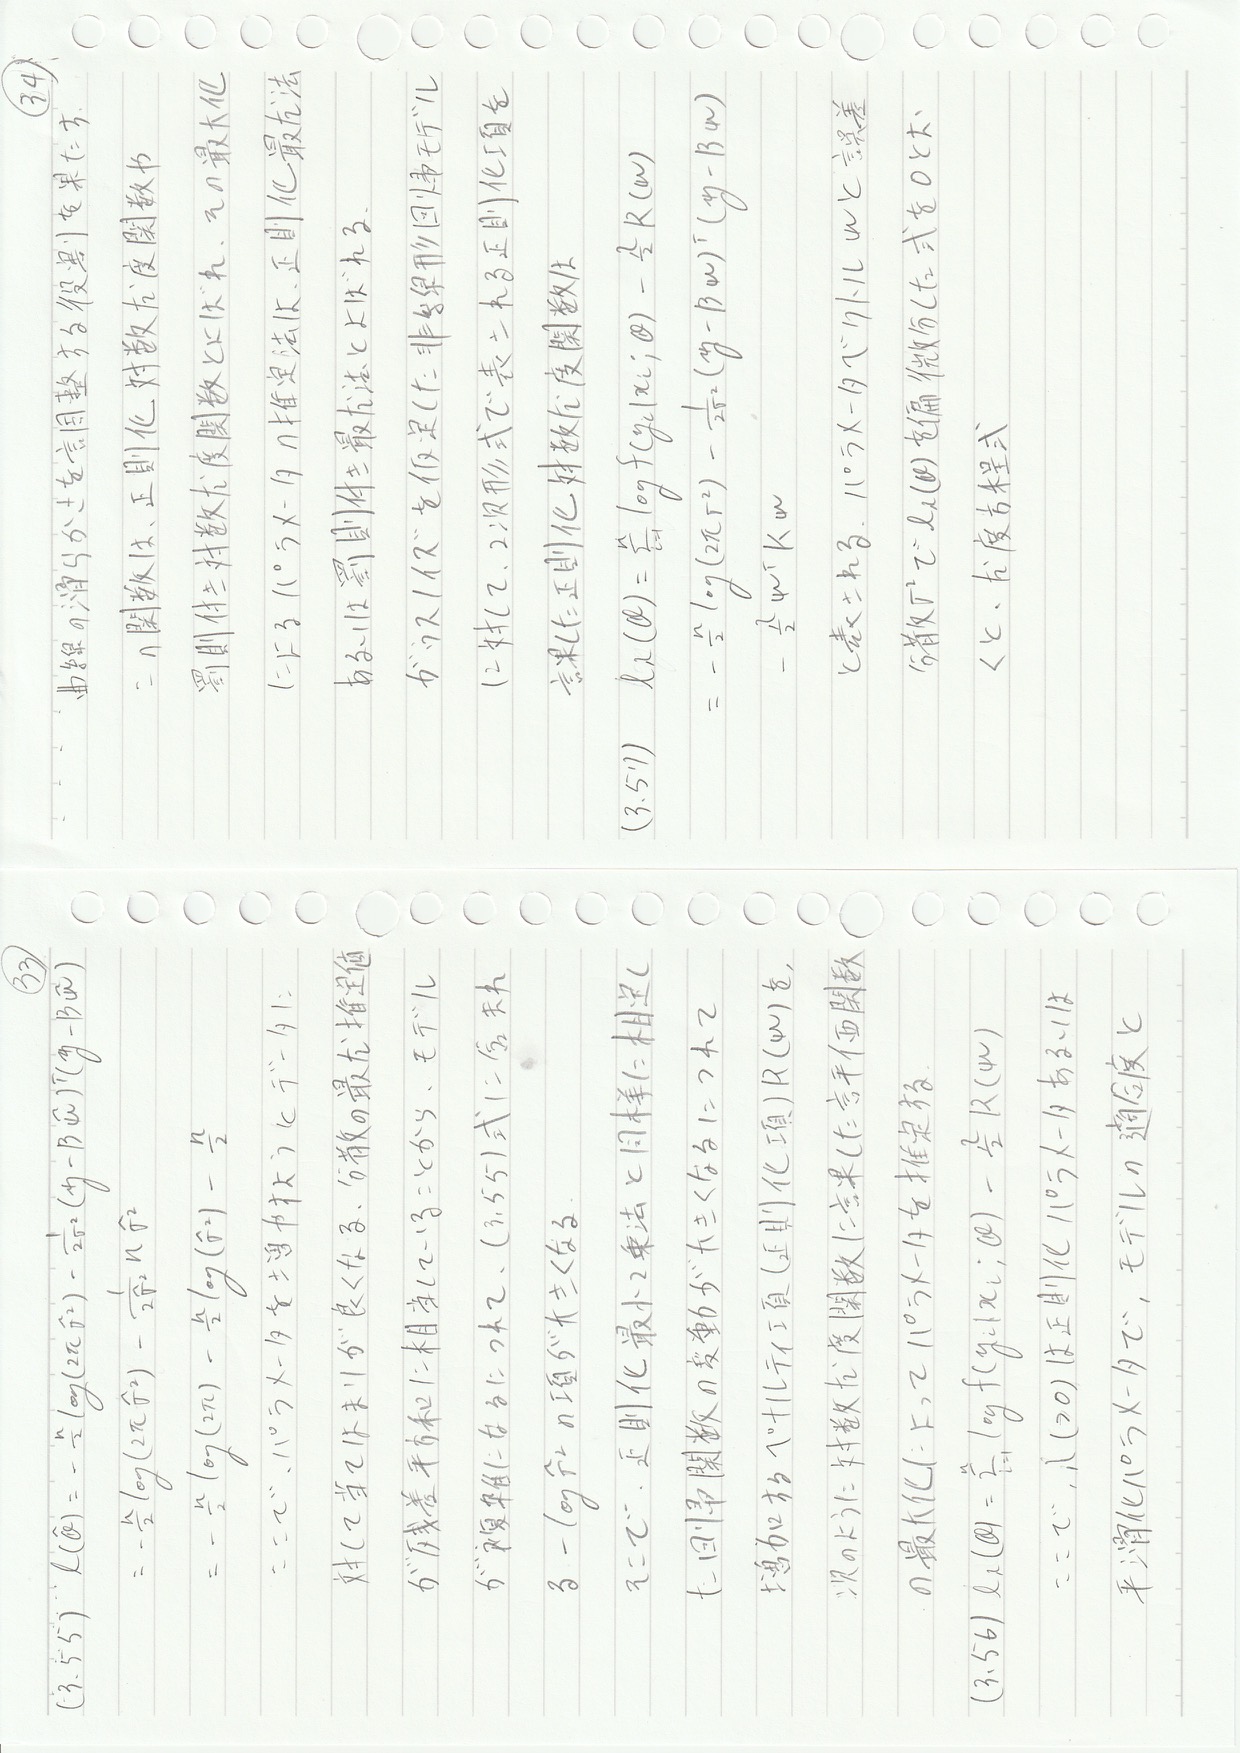 ㉝
(3.55) l(θ̂) = -n/2 log(2πσ̂²) - 1/2σ̂² (y-Bŵ)ᵀ(y-Bŵ)
= -n/2 log(2πσ̂²) - 1/2σ̂² nσ̂²
= -n/2 log(2π) - n/2 log(σ̂²) - n/2
ここで、パラメータを増やすとデータに
対して当てはまりが良くなる、分散の最尤推定値
が残差平方和に相当していることから、モデル
が複雑になるにつれて、(3.55)式に含まれ
る -log σ̂² の項が大きくなる.
そこで、正則化最小2乗法と同様に想定し
た回帰関数の変動が大きくなるにつれて
増加するペナルティ項(正則化項)R(w)を、
次のように対数尤度関数に言果した評価関数
の最大化によってパラメータを推定する.
(3.56) lλ(θ) = Σⁿᵢ₌₁ log f(yᵢ|xᵢ;θ) - λ/2 R(w)
ここで, λ(>0)は正則化パラメータあるいは
平滑化パラメータで, モデルの適合度と
㉞
曲線の滑らかさを調整する役割を果たす.
この関数は、正則化対数尤度関数や
罰則付き対数尤度関数とよばれ、その最大化
によるパラメータの推定法は、正則化最尤法
あるいは罰則付き最尤法とよばれる.
ガウスノイズを仮定した非線形回帰モデル
に対して、2次形式で表される正則化項を
言果した正則化対数尤度関数は
(3.57) lλ(θ) = Σⁿᵢ₌₁ log f(yᵢ|xᵢ;θ) - λ/2 R(w)
= -n/2 log(2πσ²) - 1/2σ² (y-Bw)ᵀ(y-Bw)
- λ/2 wᵀKw
と表される. パラメータベクトルwと誤差
分散σ²でlλ(θ)を偏微分した式を0とお
くと、尤度方程式